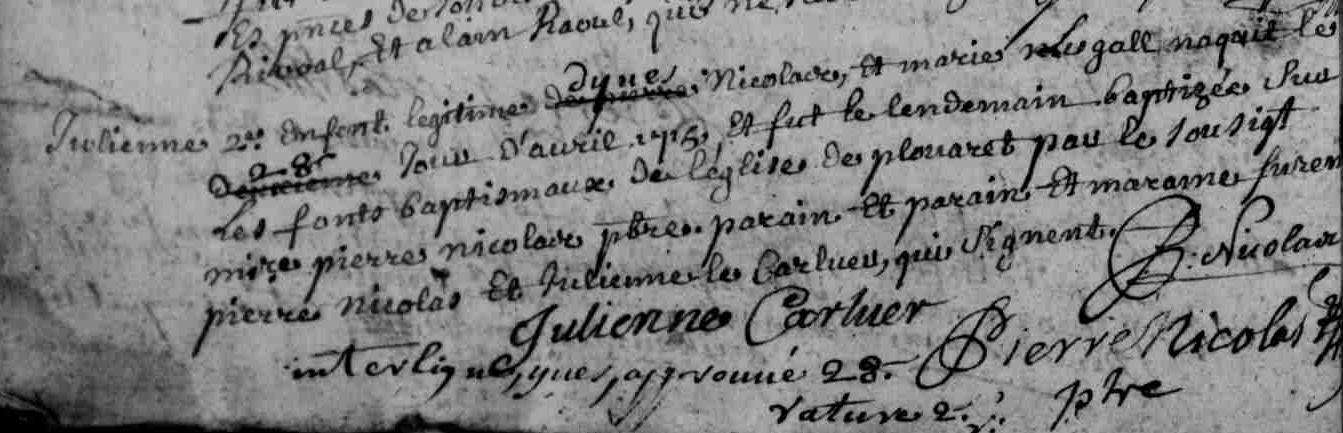 Es pnces de
Rivoal, Et alain Raoul, qui ne
Julienne 2e. Enfent legitime dyues Nicolas, Et marie le gall naquit le
28e Jour d'auril 1715, Et fut le lendemain baptizée Sur
Les fonts baptismaux de l'église de plouaret par le sousigt
mire pierre nicolas ptre. parain Et parain Et maraine furen
pierre nicolas Et Julienne le Carluer, qui Signent. P: Nicolas
Julienne Carluer
interligne, yues, approuué 28. Pierre Nicolas
rature 2. ptre